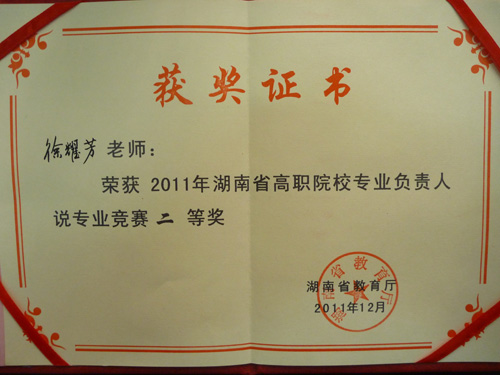 获奖证书
徐耀芳 老师：
荣获 2011年湖南省高职院校专业负责人
说专业竞赛 二 等奖
湖南省教育厅
湖南省教育厅
2011年12月